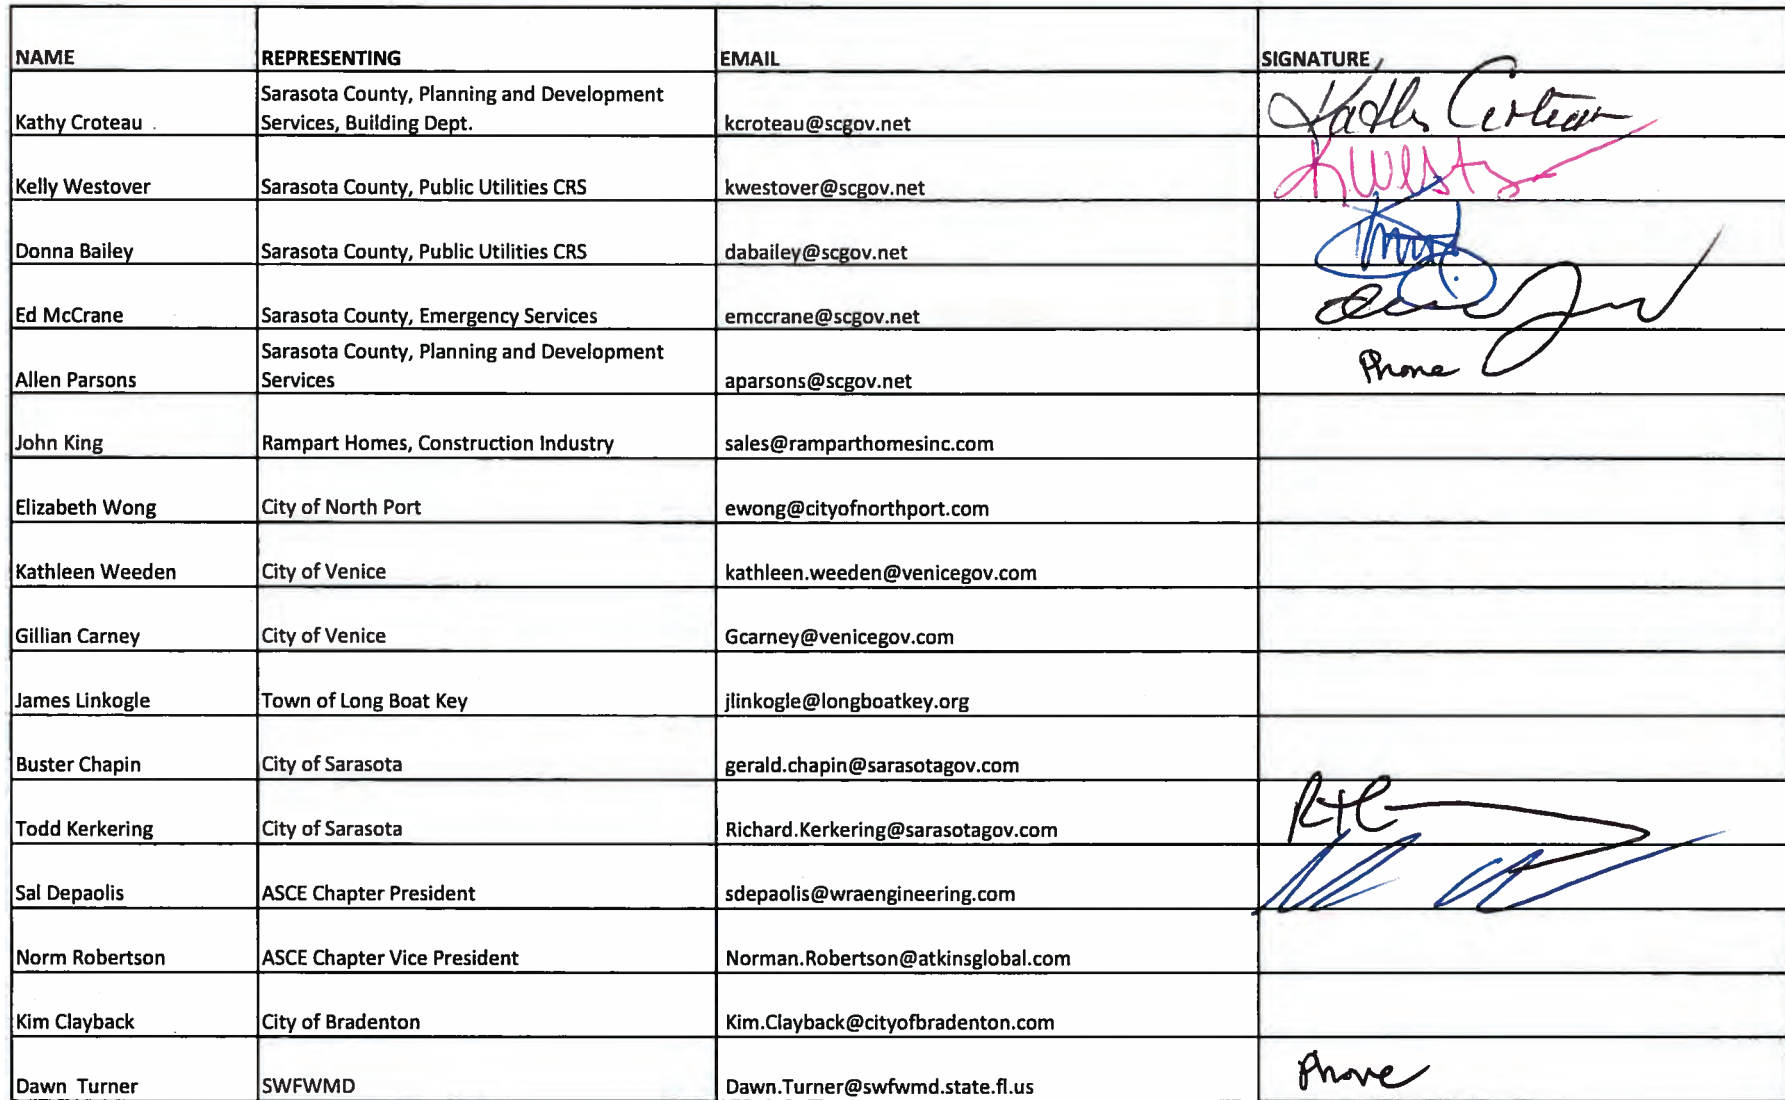 NAME REPRESENTING EMAIL SIGNATURE
Sarasota County, Planning and Development
Kathy Croteau Services, Building Dept. kcroteau@scgov.net Kathy Croteau
Kelly Westover Sarasota County, Public Utilities CRS kwestover@scgov.net KWest
Donna Bailey Sarasota County, Public Utilities CRS dabailey@scgov.net
Ed McCrane Sarasota County, Emergency Services emccrane@scgov.net
Sarasota County, Planning and Development
Allen Parsons Services aparsons@scgov.net Phone
John King Rampart Homes, Construction Industry sales@ramparthomesinc.com
Elizabeth Wong City of North Port ewong@cityofnorthport.com
Kathleen Weeden City of Venice kathleen.weeden@venicegov.com
Gillian Carney City of Venice Gcarney@venicegov.com
James Linkogle Town of Long Boat Key jlinkogle@longboatkey.org
Buster Chapin City of Sarasota gerald.chapin@sarasotagov.com
Todd Kerkering City of Sarasota Richard.Kerkering@sarasotagov.com
Sal Depaolis ASCE Chapter President sdepaolis@wraengineering.com
Norm Robertson ASCE Chapter Vice President Norman.Robertson@atkinsglobal.com
Kim Clayback City of Bradenton Kim.Clayback@cityofbradenton.com
Dawn Turner SWFWMD Dawn.Turner@swfwmd.state.fl.us Phone